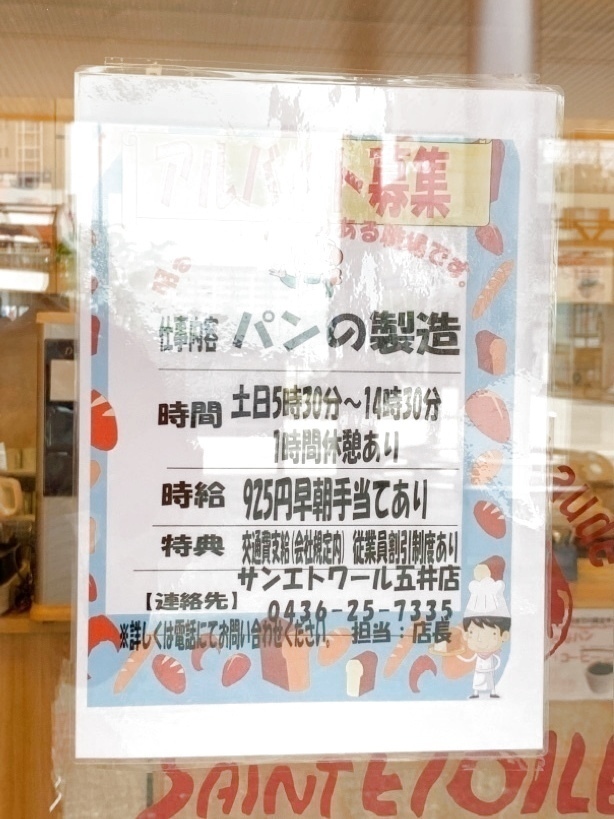 募集
ある職場です。
仕事内容 パンの製造
時間 土日5時30分～14時30分
1時間休憩あり
時給 925円早朝手当てあり
特典 交通費支給(会社規定内) 従業員割引制度あり
サンエトワール五井店
【連絡先】 0436-25-7335
※詳しくは電話にてお問い合わせください。 担当：店長
SAINT ETOILE